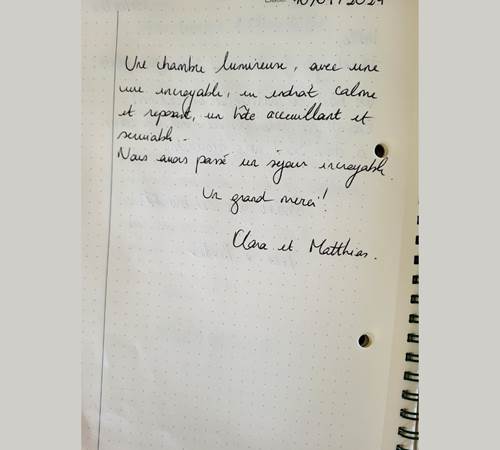 Une chambre lumineuse, avec une
vue incroyable, un endroit calme
et reposant, un hôte accueillant et
serviable.
Nous avons passé un séjour incroyable.
Un grand merci !
Clara et Matthias.